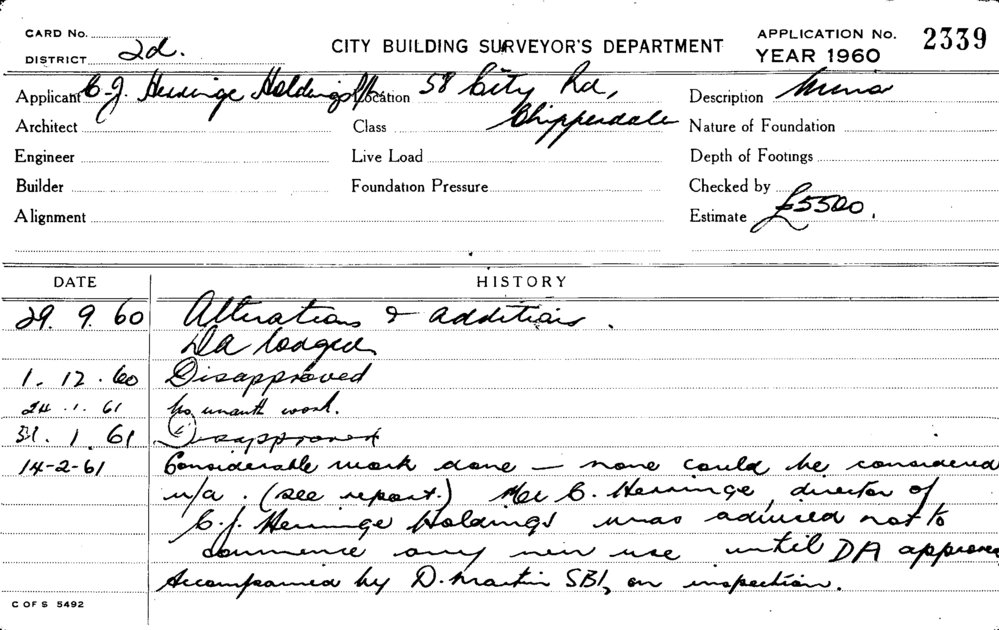 CARD No.
DISTRICT 2d.
CITY BUILDING SURVEYOR'S DEPARTMENT
APPLICATION No. 2339
YEAR 1960
Applicant C. J. Herringe Holdings P/L
Location 58 City Rd,
Chipperdale
Description
Architect
Class
Nature of Foundation
Engineer
Live Load
Depth of Footings
Builder
Foundation Pressure
Checked by
Alignment
Estimate £5500.
DATE HISTORY
29. 9. 60 Alterations & additions.
DA lodged
1. 12. 60 Disapproved
24. 1. 61 No unauth work.
31. 1. 61 Disapproved
14-2-61 Considerable work done — none could be considered
u/a. (see report.) Mr C. Herringe, director of
C. J. Herringe Holdings was advised not to
commence any new use until DA approved
Accompanied by D. Martin SBI, on inspection.
C OF S 5492